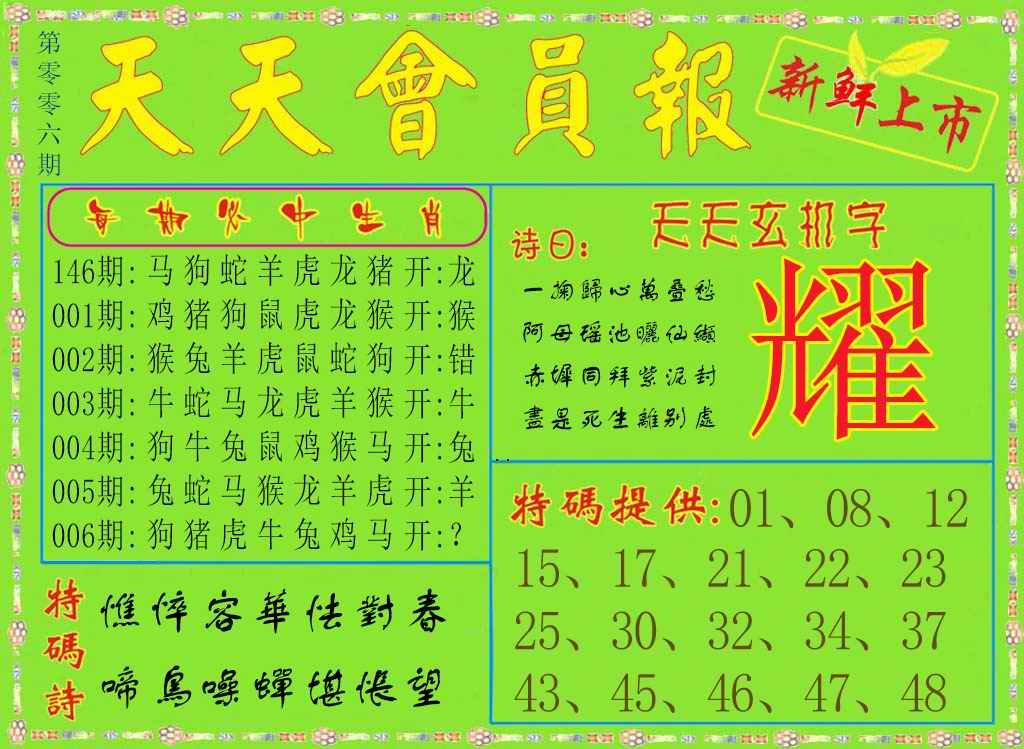 第零零六期
天天會員報
新鮮上市
每期必中生肖
146期: 马狗蛇羊虎龙猪开:龙
001期: 鸡猪狗鼠虎龙猴开:猴
002期: 猴兔羊虎鼠蛇狗开:错
003期: 牛蛇马龙虎羊猴开:牛
004期: 狗牛兔鼠鸡猴马开:兔
005期: 兔蛇马猴龙羊虎开:羊
006期: 狗猪虎牛兔鸡马开:?
特碼詩
憔悴容華怯對春
啼鳥噪蟬堪悵望
天天玄机字
诗曰:
一掬歸心萬疊愁
阿母瑶池曬仙纈
赤墀同拜紫泥封
盡是死生離别處
耀
特碼提供:01、08、12
15、17、21、22、23
25、30、32、34、37
43、45、46、47、48